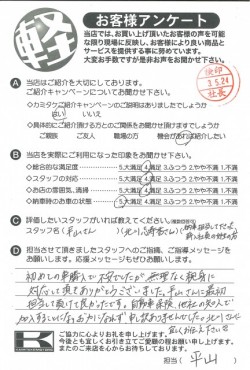 軽
お客様アンケート
当店では、お買い上げ頂いたお客様の声を可能
な限り現場に反映し、お客様により良い商品と
サービスを提供する事に努めています。
大変お手数ですが是非お声をお聞かせ下さい。
検印
3.5.24
社長
A 当店はご紹介を大切にしております。
ご紹介キャンペーンについてお聞かせ下さい。
◇カミタケご紹介キャンペーンのご説明はありましたでしょうか
はい いいえ
◇具体的にご紹介頂ける方との関係をお聞かせ頂けますでしょうか
ご親族 ご友人 職場の方 機会があれば紹介したい
B 当店を実際にご利用になった印象をお聞かせ下さい。
◇総合的な満足度 5.大満足 4.満足 3.ふつう 2.やや不満 1.不満
◇スタッフの対応 5.大満足 4.満足 3.ふつう 2.やや不満 1.不満
◇お店の雰囲気、清掃 5.大満足 4.満足 3.ふつう 2.やや不満 1.不満
◇納車時のお車の状態 5.大満足 4.満足 3.ふつう 2.やや不満 1.不満
C 評価したいスタッフがいれば教えてください。(複数回答可)
スタッフ名(平山さん)
D 担当させて頂きましたスタッフへのご指摘、ご指導メッセージを
お願いします。応援メッセージもぜひお願いします。
初めての車購入で不安でしたが、無理なく親身に
対応して頂きありがとうございました。平山さんに最初
担当して頂けて良かったです。自動車保険、他社の知人で
K
ご協力に心よりお礼を申し上げます。
今後とも宜しくお引き立てご愛顧の程お願い申し上げます。
またのご来店を心よりお待ちしております。
担当(平山)